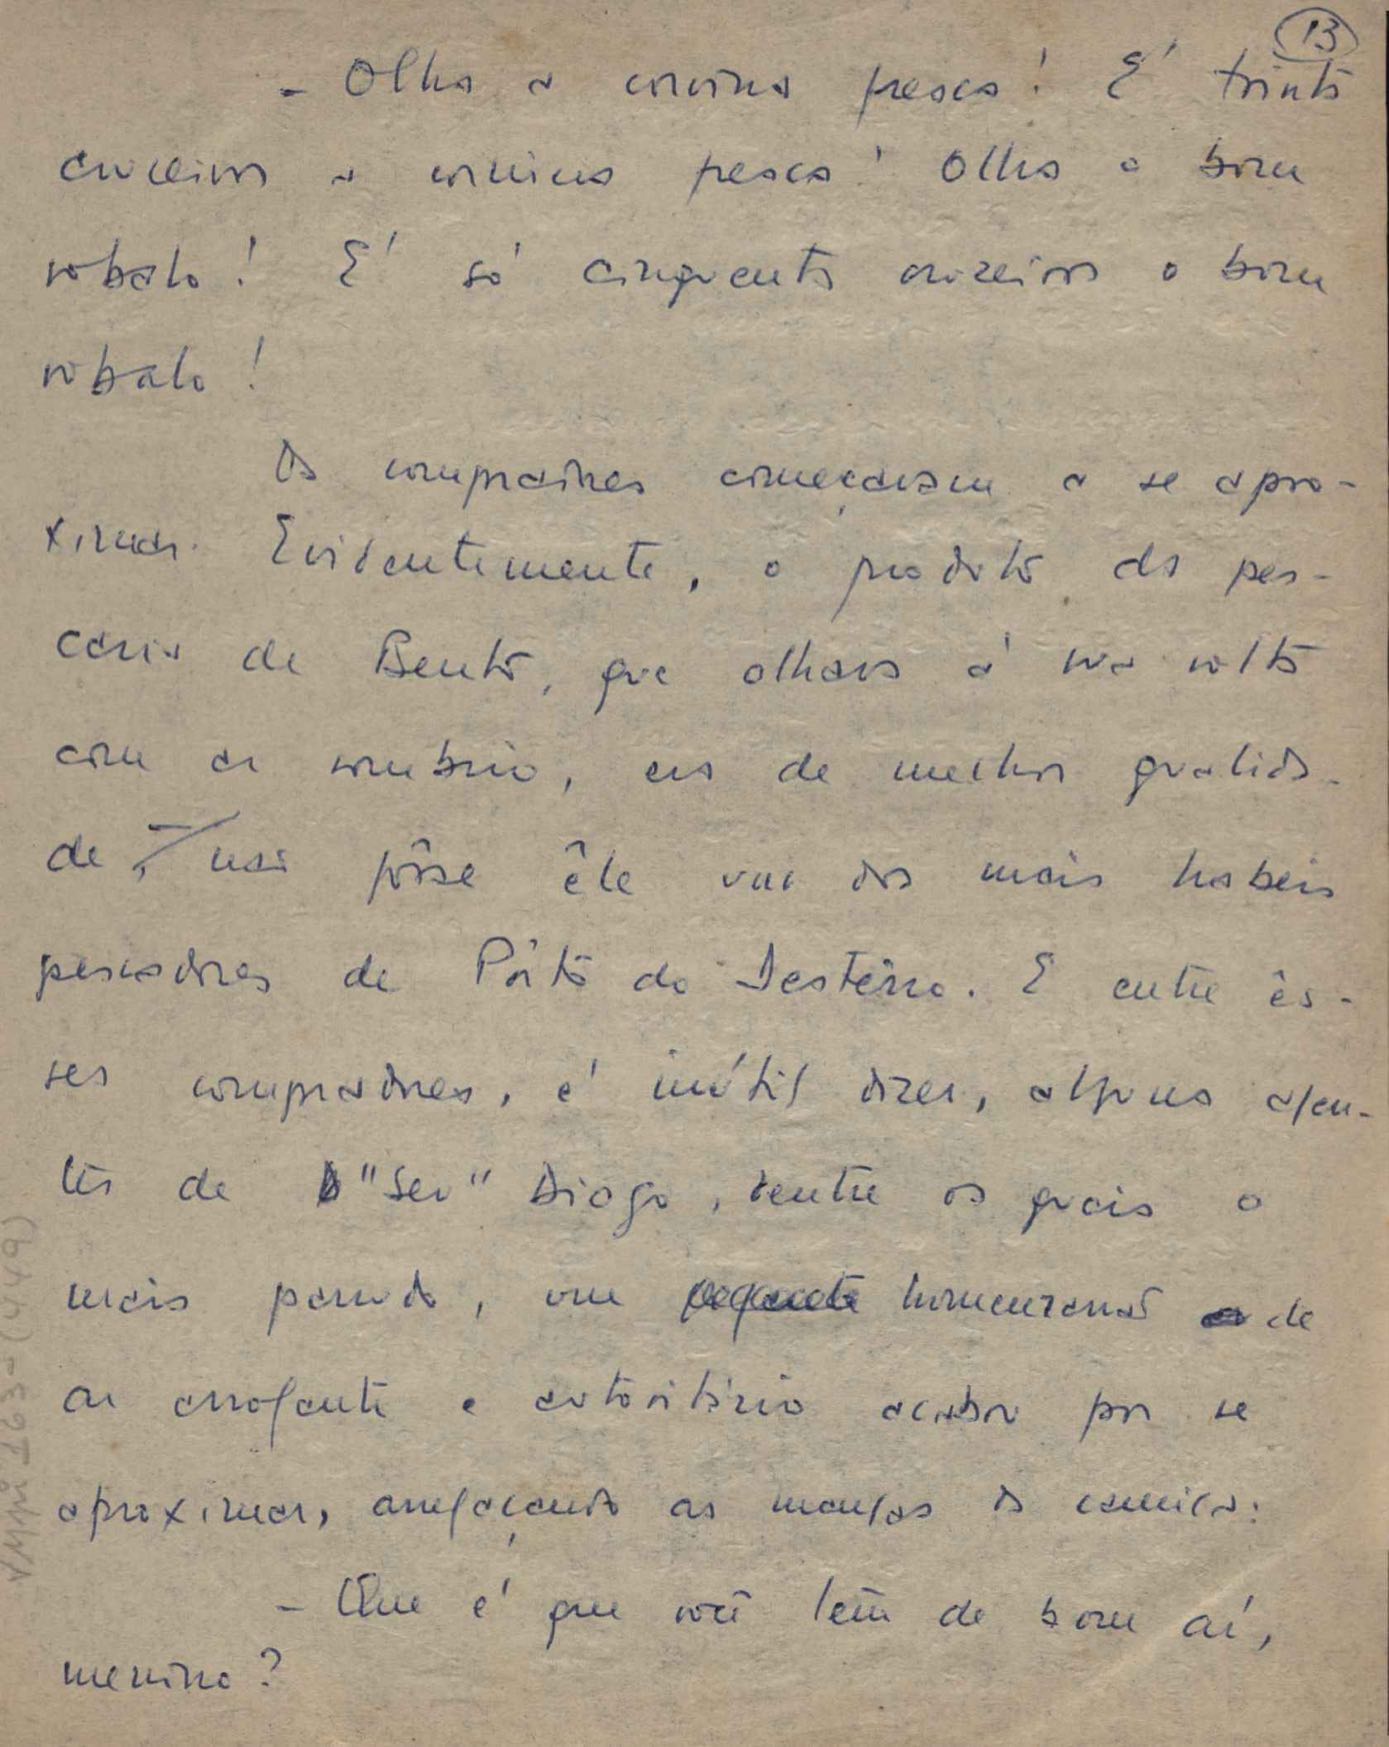 13
- Olha a corvina fresca! É trinta
cruzeiros a corvina fresca! Olha o bom
robalo! É só cinquenta cruzeiros o bom
robalo!
Os compradores começavam a se apro-
ximar. Evidentemente, o produto da pes-
caria de Bento, que olhava à sua volta
com ar sombrio, era de melhor qualida-
de, não fôsse êle um dos mais habeis
pescadores de Pôrto do Destêrro. E entre ês-
ses compradores, é inútil dizer, alguns agen-
tes de "Seu" Diogo, dentre os quais o
mais parrudo, um homenzarrão de
ar arrogante e autoritário acabou por se
aproximar, arregaçando as mangas da camisa:
- Que é que você tem de bom aí,
menino?
VMPI 163-(449)